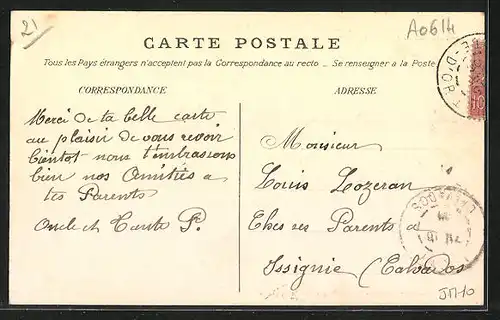 21
A0614
CARTE POSTALE
Tous les Pays étrangers n'acceptent pas la Correspondance au recto _ Se renseigner à la Poste
CORRESPONDANCE
ADRESSE
Merci de ta belle carte
au plaisir de vous revoir
bientot nous t'embrassons
bien nos Amitiés a
tes Parents
Oncle et Tante P.
Monsieur
Louis Lozeran
Ches ses Parents a
Issignie (Calvados
CALVADOS
D'OR
10
JM10